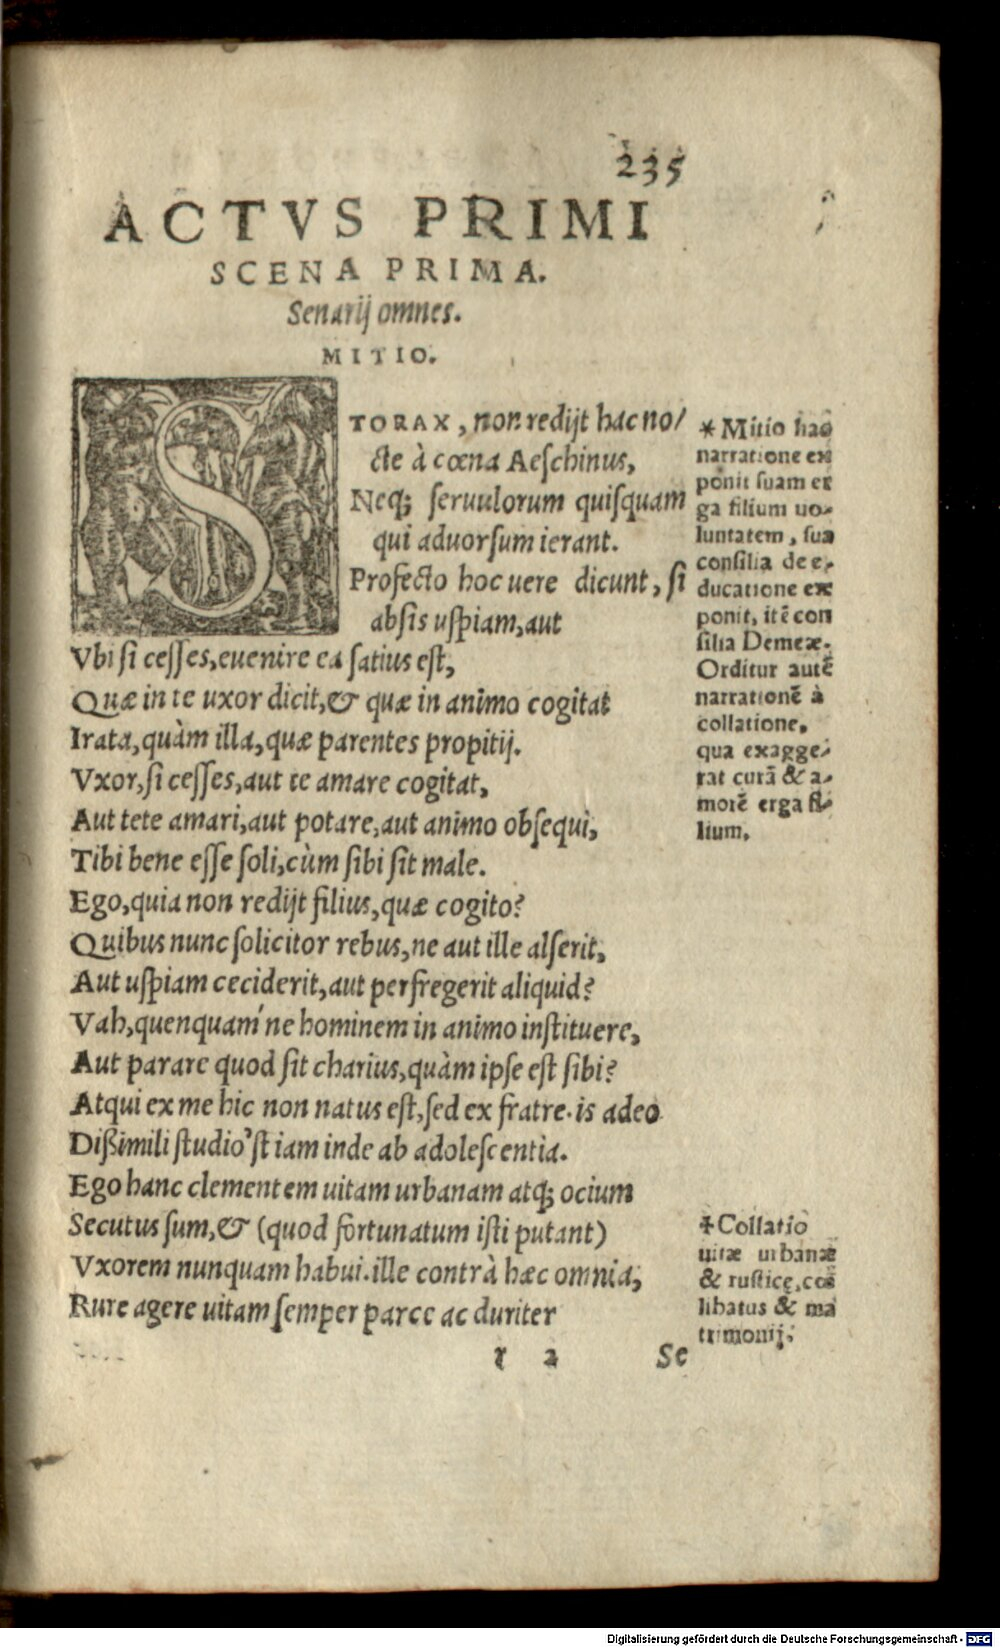 235
ACTVS PRIMI
SCENA PRIMA.
Senarij omnes.
MITIO.
STORAX, non redijt hac no/
cte à cœna Aeschinus,
Neq; seruulorum quisquam
qui aduorsum ierant.
Profecto hoc uere dicunt, si
absis uspiam, aut
Vbi si cesses, euenire ea satius est,
Quæ in te uxor dicit, & quæ in animo cogitat
Irata, quàm illa, quæ parentes propitij.
Vxor, si cesses, aut te amare cogitat,
Aut tete amari, aut potare, aut animo obsequi,
Tibi bene esse soli, cùm sibi sit male.
Ego, quia non redijt filius, quæ cogito?
Quibus nunc solicitor rebus, ne aut ille alserit,
Aut uspiam ceciderit, aut perfregerit aliquid?
Vah, quenquam´ne hominem in animo instituere,
Aut parare quod sit charius, quàm ipse est sibi?
Atqui ex me hic non natus est, sed ex fratre. is adeo
Dißimili studio'st iam inde ab adolescentia.
Ego hanc clementem uitam urbanam atq; ocium
Secutus sum, & (quod fortunatum isti putant)
Vxorem nunquam habui. ille contrà hæc omnia,
Rure agere uitam semper parce ac duriter
r 2 Se
* Mitio hac
narratione ex
ponit suam er
ga filium uo-
luntatem, sua
consilia de e-
ducatione ex
ponit, itē con
silia Demeæ.
Orditur autē
narrationē à
collatione,
qua exagge-
rat curā & a-
morē erga fi-
lium.
✢ Collatio
uitæ urbanæ
& rusticę, cœ
libatus & ma
trimonij.
Digitalisierung gefördert durch die Deutsche Forschungsgemeinschaft - DFG